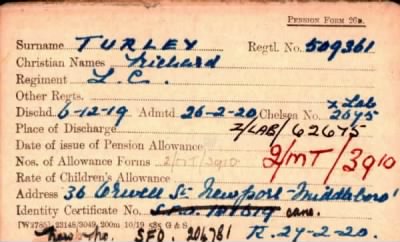 PENSION FORM 26B.
Surname TURLEY Regtl. No. 509361
Christian Names Richard
Regiment L.C.
Other Regts. z Lab
Dischd. 6-12-19 Admtd. 26-2-20 Chelsea No. 2675
Place of Discharge Z/LAB/62675
Date of issue of Pension Allowance 2/MT/3910
Nos. of Allowance Forms 2/MT/3910
Rate of Children's Allowance
Address 36 Orwell St Newport Middlesboro'
Identity Certificate No. canc.
[W2785] 23148/3049. 200m 10/19 585 G & S
New No. SFO. 204761 R. 27-2-20.